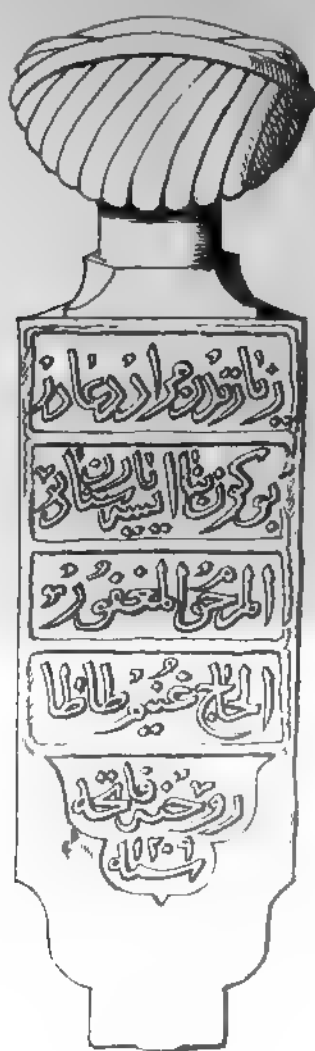 زيارتدن مراد دعادر
بوكون بڭا ايسه يارن سڭادر
المرحوم المغفور
الحاج
روحنه فاتحه
سنه ١٢٠٦